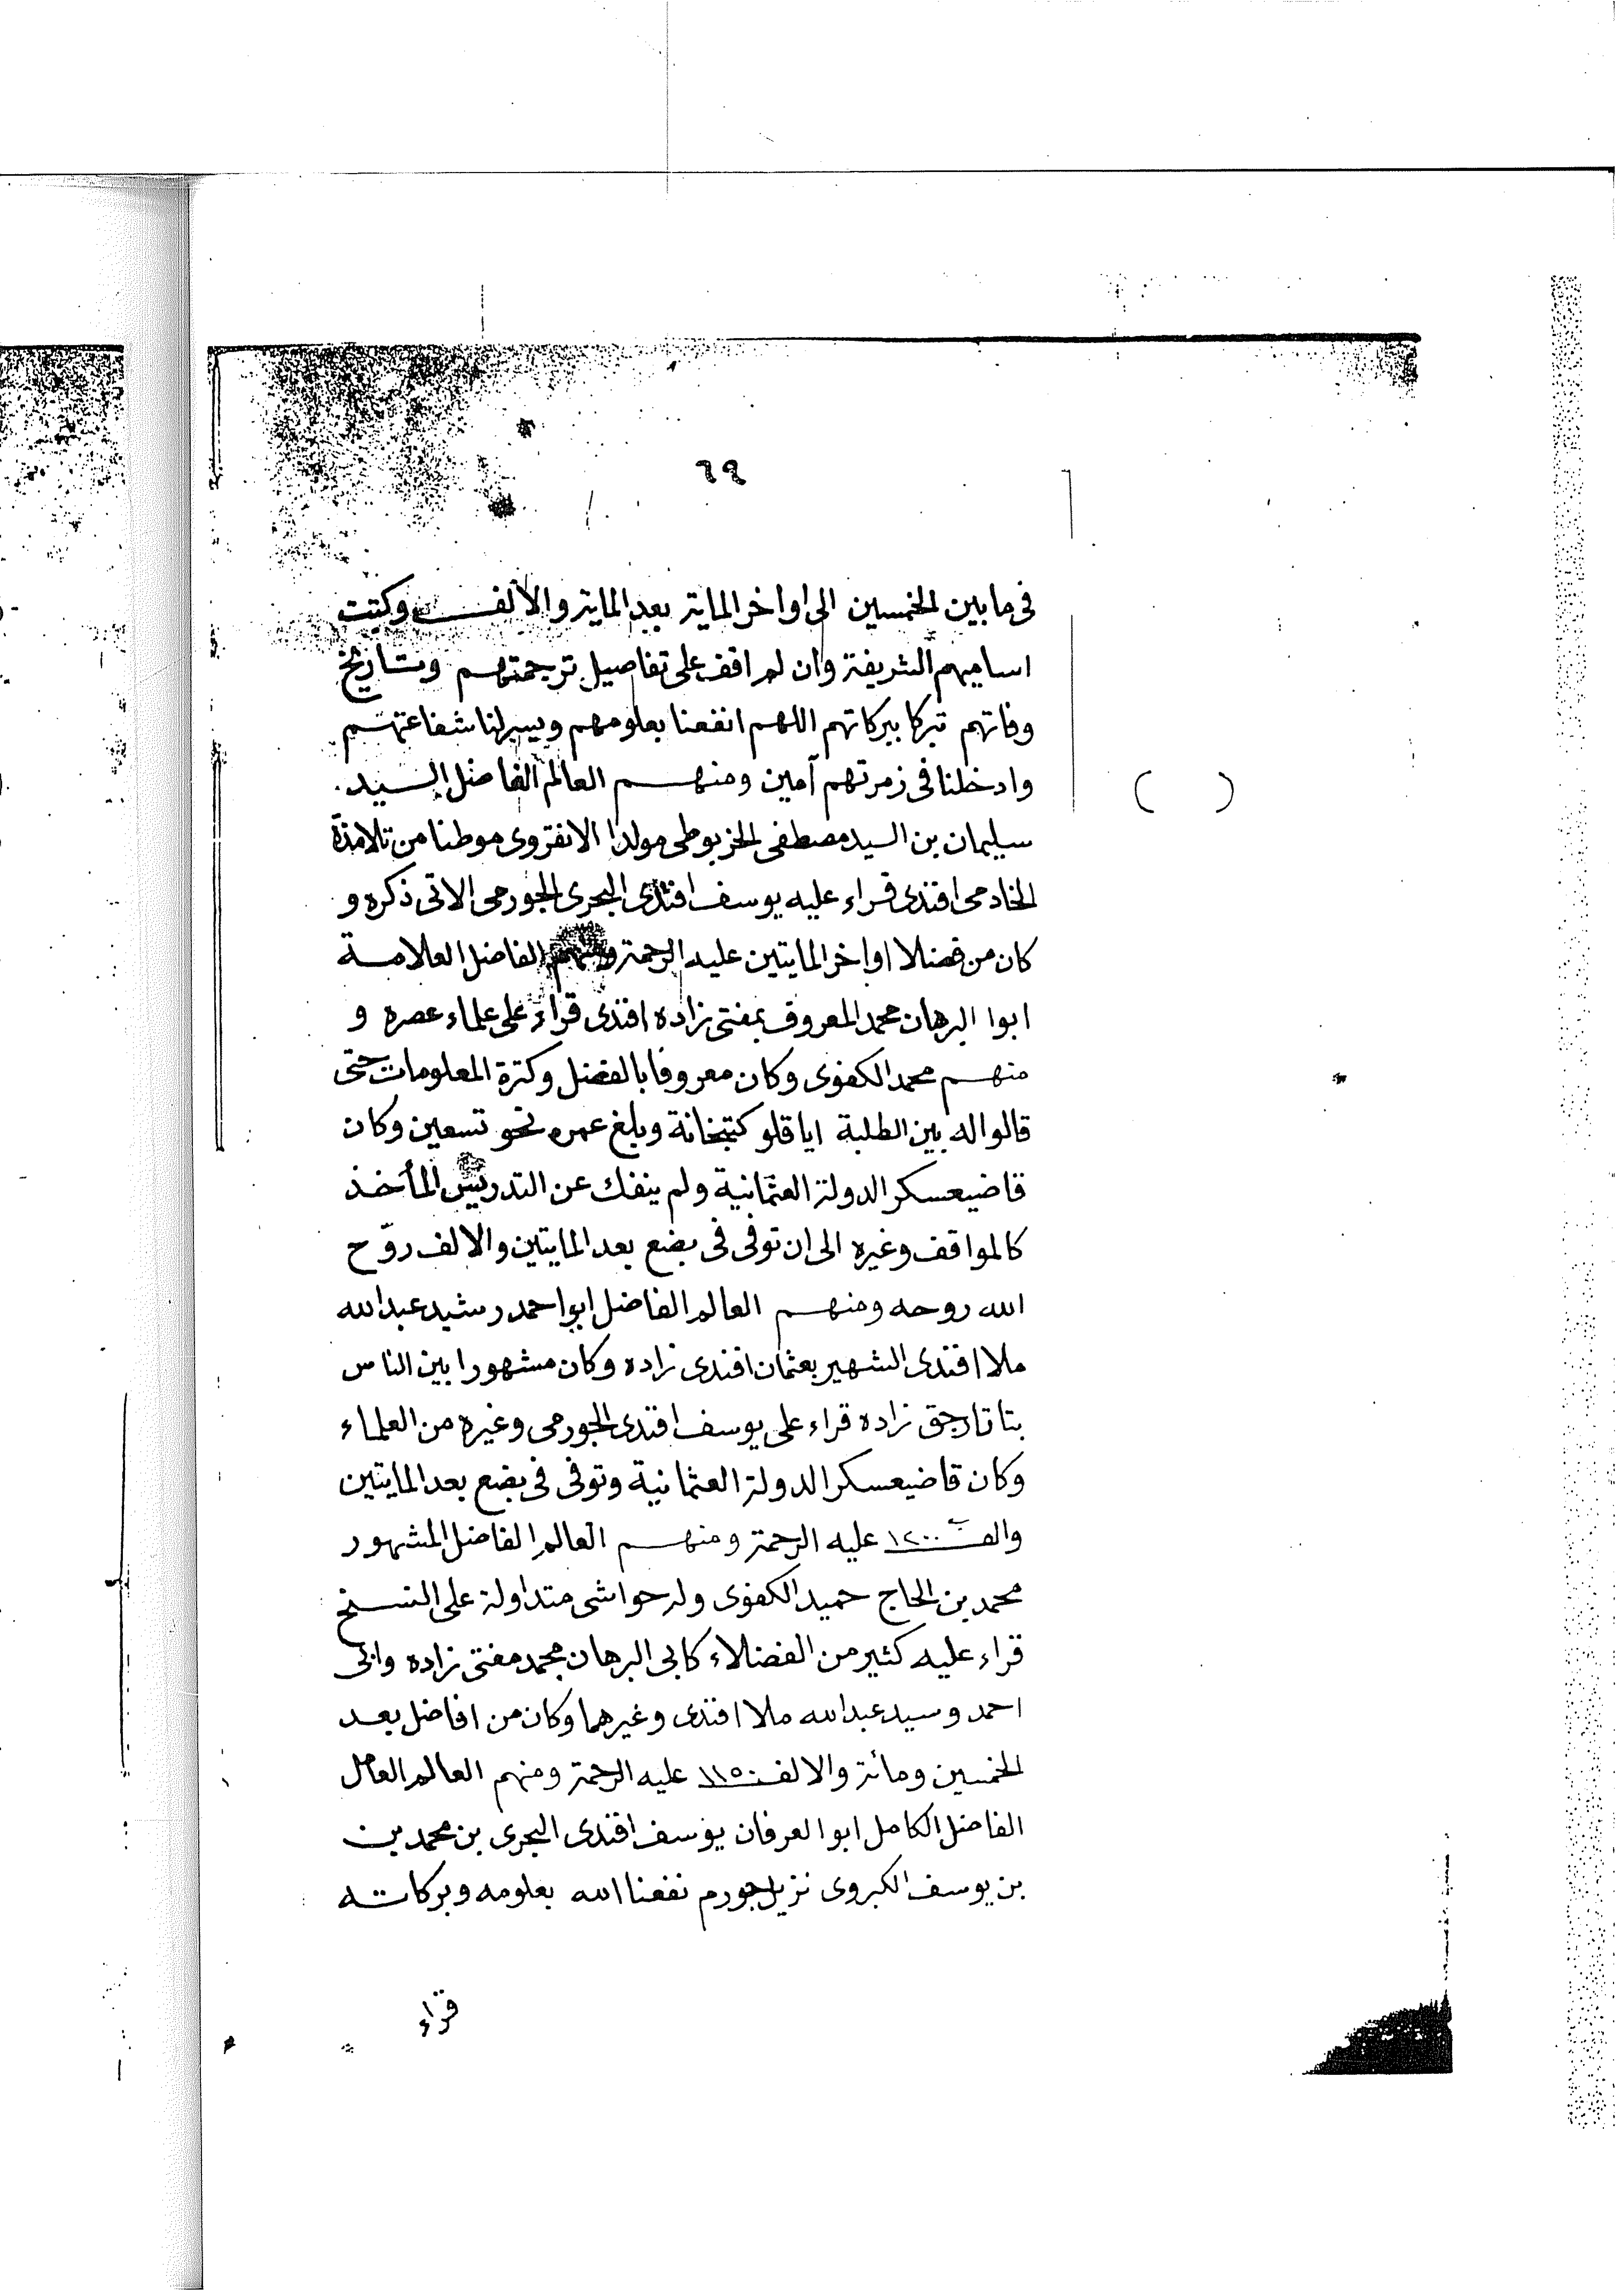 ٦٩
فى مابين الخمسين الى اواخر المايتر بعد المايتر والالف وكتبت
اساميهم الشريفة وان لم اقف على تفاصيل ترجمتهم وتاريخ
وفاتهم تبركا ببركاتهم اللهم انفعنا بعلومهم ويسر لنا شفاعتهم
وادخلنا فى زمرتهم آمين ومنهم العالم الفاضل السيد
سليمان بن السيد مصطفى الخربوطى مولدا الانقروى موطنا من تلامذة
الخادمى افندى قراء عليه يوسف افندى البحرى الجورمى الاتى ذكره و
كان من فضلا اواخر المايتين عليه الرحمة ومنهم الفاضل العلامة
ابوا البرهان محمد المعروف بمفتى زاده افندى قراء على علماء عصره و
منهم محمد الكفوى وكان معروفا بالفضل وكثرة المعلومات حتى
قالوا له بين الطلبة اياقلو كتبخانة وبلغ عمره نحو تسعين وكان
قاضيعسكر الدولة العثمانية ولم ينفك عن التدريس المأخذ
كالمواقف وغيره الى ان توفى فى بضع بعد المايتين والالف روّح
الله روحه ومنهم العالم الفاضل ابو احمد رشيد عبد الله
ملا افندى الشهير بعثمان افندى زاده وكان مشهورا بين الناس
بتاتارجق زاده قراء على يوسف افندى الجورمى وغيره من العلماء
وكان قاضيعسكر الدولة العثمانية وتوفى فى بضع بعد المايتين
والف ١٢٠٠ عليه الرحمة ومنهم العالم الفاضل المشهور
محمد بن الحاج حميد الكفوى وله حواشى متداولة على النسخ
قراء عليه كثير من الفضلاء كابى البرهان محمد مفتى زاده وابى
احمد وسيد عبد الله ملا افندى وغيرهما وكان من افاضل بعد
الخمسين ومائة والالف ١١٥٠ عليه الرحمة ومنهم العالم العامل
الفاضل الكامل ابو العرفان يوسف افندى البحرى بن محمد بن
بن يوسف الكبروى نزيل جورم نفعنا الله بعلومه وبركاته
قراء